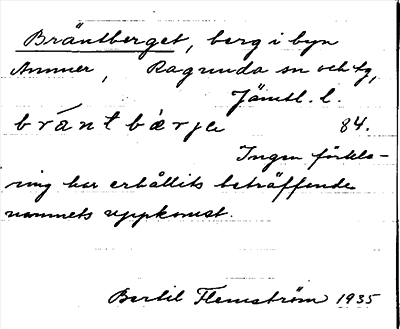 Bräntberget, berg i byn
Ammer, Ragunda sn och tg,
Jämtl. l.
bränt bærje 84.
Ingen förkla-
ring har erhållits beträffande
namnets uppkomst.
Bertil Flemström 1935